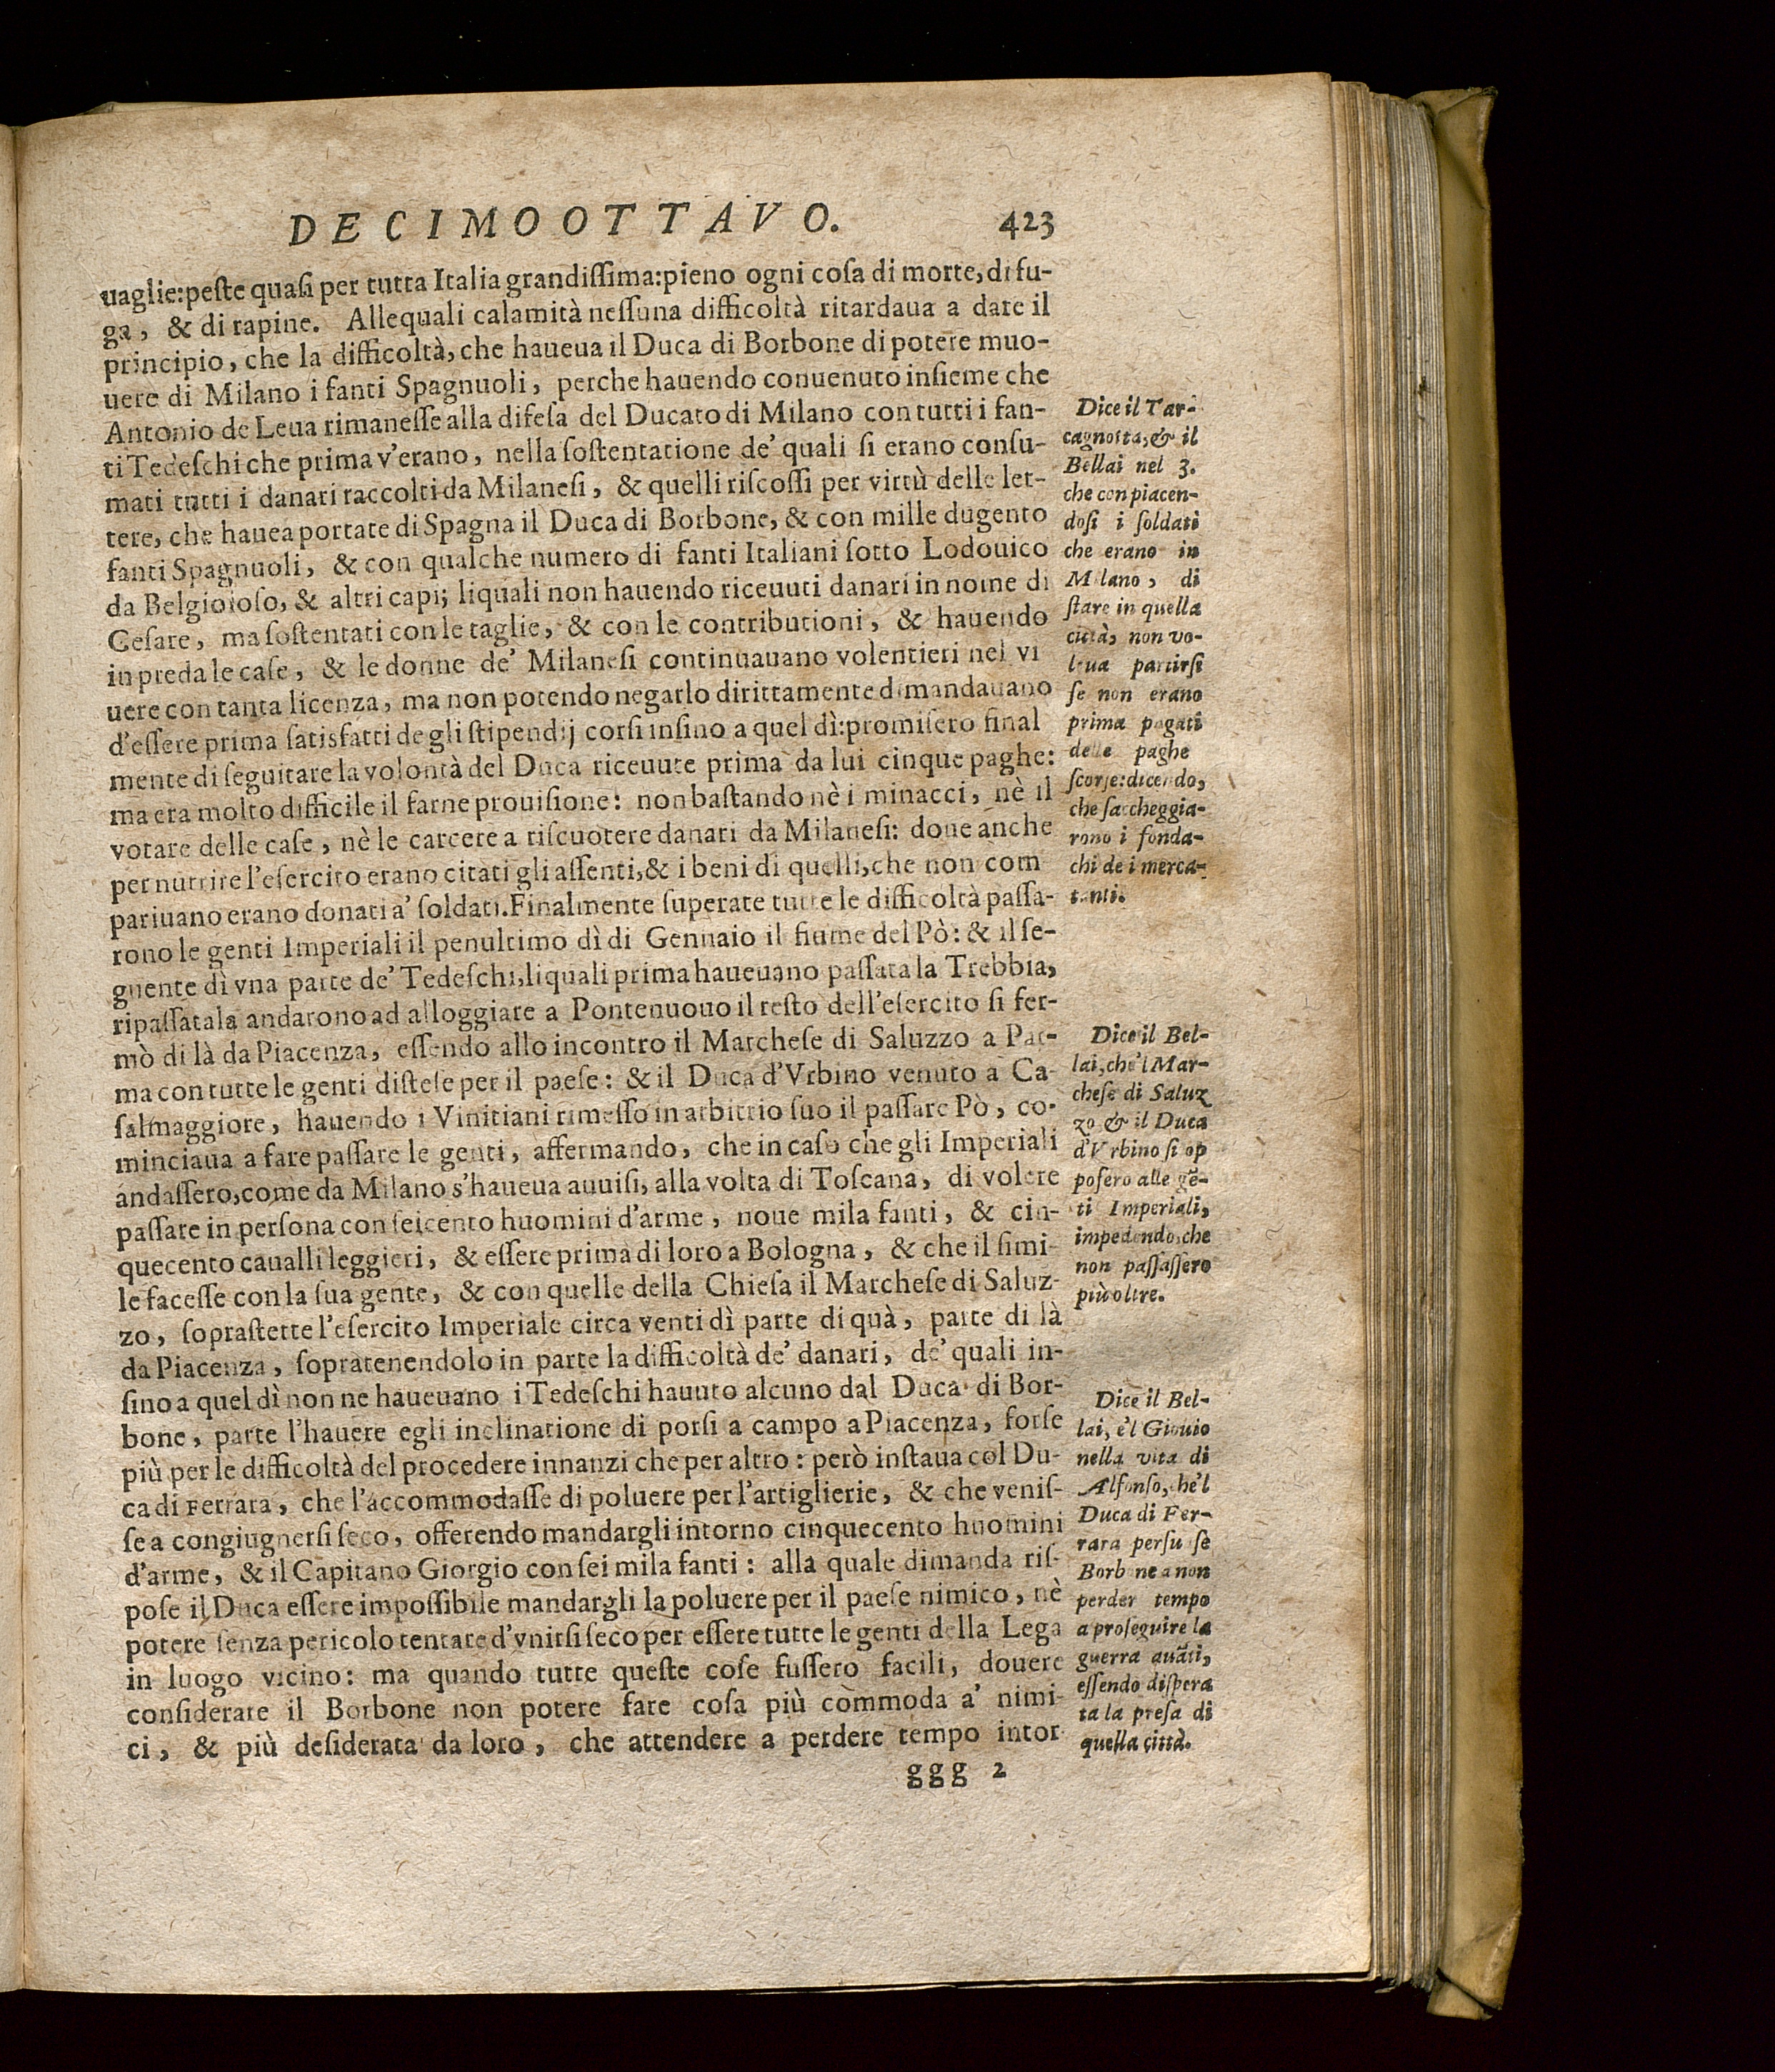 DECIMOOTTAVO. 423
uaglie:peſte quaſi per tutta Italia grandiſſima:pieno ogni coſa di morte, di fu-
ga, & di rapine. Allequali calamità neſſuna difficoltà ritardaua a dare il
principio, che la difficoltà, che haueua il Duca di Borbone di potere muo-
uere di Milano i fanti Spagnuoli, perche hauendo conuenuto inſieme che
Antonio de Leua rimaneſſe alla difeſa del Ducato di Milano con tutti i fan-
ti Tedeſchi che prima v'erano, nella ſoſtentatione de' quali ſi erano conſu-
mati tutti i danari raccolti da Milaneſi, & quelli riſcoſſi per virtù delle let-
tere, che hauea portate di Spagna il Duca di Borbone, & con mille dugento
fanti Spagnuoli, & con qualche numero di fanti Italiani ſotto Lodouico
da Belgioioſo, & altri capi; liquali non hauendo riceuuti danari in nome di
Ceſare, ma ſoſtentati con le taglie, & con le contributioni, & hauendo
in preda le caſe, & le donne de' Milaneſi continuauano volentieri nel vi
uere con tanta licenza, ma non potendo negarlo dirittamente dimandauano
d'eſſere prima ſatisfatti de gli ſtipendij corſi inſino a quel dì:promiſero final
mente di ſeguitare la volontà del Duca riceuute prima da lui cinque paghe:
ma era molto difficile il farne prouiſione: non baſtando nè i minacci, nè il
votare delle caſe, nè le carcere a riſcuotere danari da Milaneſi: doue anche
per nutrire l'eſercito erano citati gli aſſenti, & i beni di quelli, che non com
pariuano erano donati a' ſoldati. Finalmente ſuperate tutte le difficoltà paſſa-
rono le genti Imperiali il penultimo dì di Gennaio il fiume del Pò: & il ſe-
guente dì vna parte de' Tedeſchi, liquali prima haueuano paſſata la Trebbia,
ripaſſatala andarono ad alloggiare a Pontenuouo il reſto dell'eſercito ſi fer-
mò di là da Piacenza, eſſendo allo incontro il Marcheſe di Saluzzo a Par-
ma con tutte le genti diſteſe per il paeſe: & il Duca d'Vrbino venuto a Ca-
ſalmaggiore, hauendo i Vinitiani rimeſſo in arbitrio ſuo il paſſare Pò, co-
minciaua a fare paſſare le genti, affermando, che in caſo che gli Imperiali
andaſſero, come da Milano s'haueua auuiſi, alla volta di Toſcana, di volere
paſſare in perſona con ſeicento huomini d'arme, noue mila fanti, & cin-
quecento caualli leggieri, & eſſere prima di loro a Bologna, & che il ſimi-
le faceſſe con la ſua gente, & con quelle della Chieſa il Marcheſe di Saluz-
zo, ſopraſtette l'eſercito Imperiale circa venti dì parte di quà, parte di là
da Piacenza, ſopratenendolo in parte la difficoltà de' danari, de' quali in-
ſino a quel dì non ne haueuano i Tedeſchi hauuto alcuno dal Duca di Bor-
bone, parte l'hauere egli inclinatione di porſi a campo a Piacenza, forſe
più per le difficoltà del procedere innanzi che per altro: però inſtaua col Du-
ca di Ferrara, che l'accommodaſſe di poluere per l'artiglierie, & che veniſ-
ſe a congiugnerſi ſeco, offerendo mandargli intorno cinquecento huomini
d'arme, & il Capitano Giorgio con ſei mila fanti: alla quale dimanda riſ-
poſe il Duca eſſere impoſſibile mandargli la poluere per il paeſe nimico, nè
potere ſenza pericolo tentare d'vnirſi ſeco per eſſere tutte le genti della Lega
in luogo vicino: ma quando tutte queſte coſe fuſſero facili, douere
conſiderare il Borbone non potere fare coſa più commoda a' nimi-
ci, & più deſiderata da loro, che attendere a perdere tempo intor
ggg 2
Dice il Tar-
cagnotta, & il
Bellai nel 3.
che conpiacen-
doſi i ſoldati
che erano in
Milano, di
ſtare in quella
città, non vo-
leua partirſi
ſe non erano
prima pagati
delle paghe
ſcorſe:dicendo,
che ſaccheggia-
rono i fonda-
chi de i merca-
tanti.
Dice il Bel-
lai, che'l Mar-
cheſe di Saluz
zo & il Duca
d'Vrbino ſi op
poſero alle gē-
ti Imperiali,
impedendo, che
non paſſaſſero
più oltre.
Dice il Bel-
lai, e'l Giouio
nella vita di
Alfonſo, che'l
Duca di Fer-
rara perſuaſe
Borbone a non
perder tempo
a proſeguire la
guerra auāti,
eſſendo diſpera
ta la preſa di
quella città.